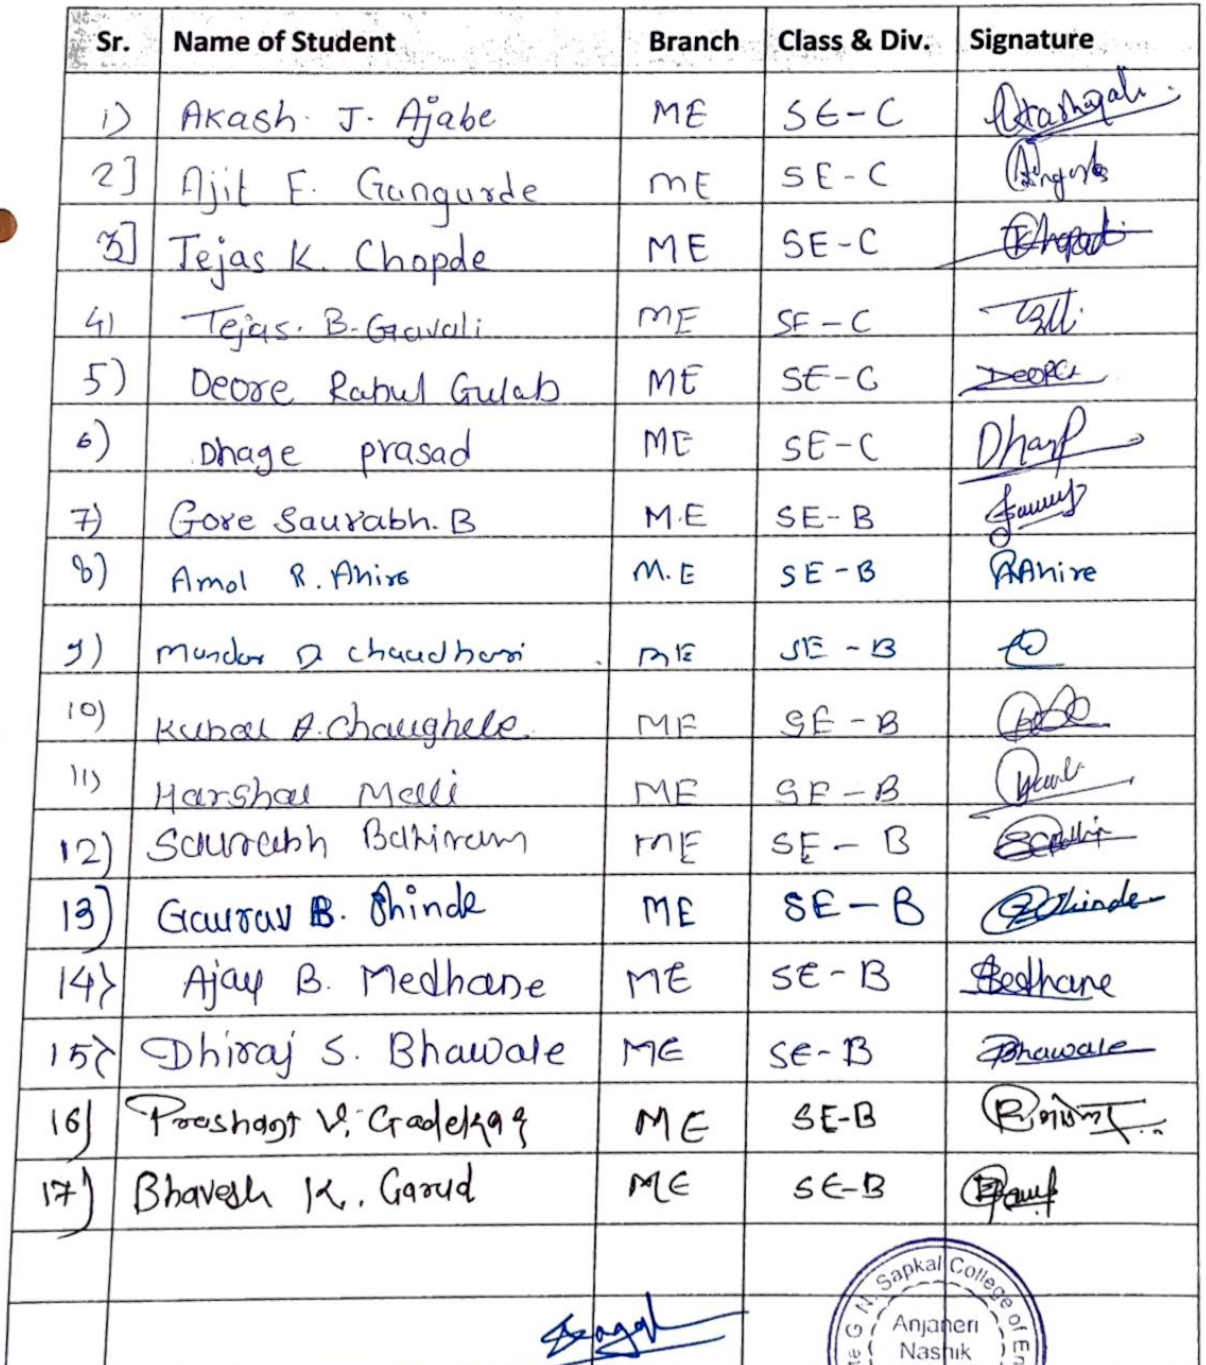 Sr. Name of Student Branch Class & Div. Signature
1) Akash. J. Ajabe ME SE-C
2] Ajit E. Gangurde ME SE-C
3] Tejas K. Chopde ME SE-C
4) Tejas. B. Gavali ME SE-C
5) Deore Rahul Gulab ME SE-C Deore
6) Dhage prasad ME SE-C
7) Gore Saurabh. B M.E SE-B
8) Amol R. Ahire M.E SE-B RAhire
9) Mandar D chaudhari ME SE-B
10) Kunal A. Chaughele ME SE-B
11) Harshal Malli ME SE-B
12) Saurabh Bahiram ME SE-B
13) Gaurav B. Shinde ME SE-B Shinde
14) Ajay B. Medhane ME SE-B Medhane
15) Dhiraj S. Bhawale ME SE-B Bhawale
16) Prashant V. Gadekar ME SE-B
17) Bhavesh K. Garud ME SE-B
G. N. Sapkal College of En
Anjaneri
Nashik